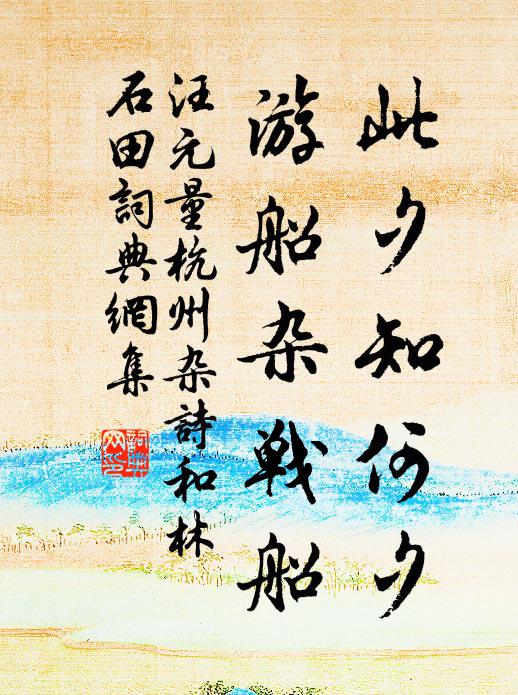 此夕知何夕
游船杂戰船
汪元量杭州杂詩和林
石田詞典網集